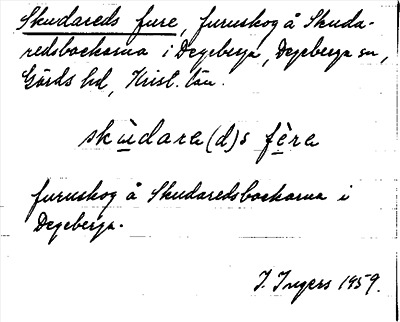 Skudareds fure, furuskog å Skuda-
redsbackarna i Degeberga, Degeberga sn,
Gärds hd, Krist. län.
skùdara(d)s fèra
furuskog å Skudaredsbackarna i
Degeberga.
I. Ingers 1959.